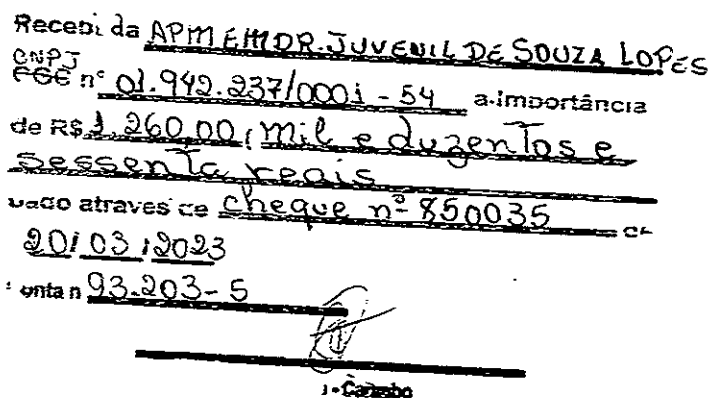 Recebi da APM EM DR. JUVENIL DE SOUZA LOPES
CNPJ
CGC nº 01.942.237/0001-54 a importância
de R$ 1.260,00 (mil e duzentos e
sessenta reais
pago atraves de cheque nº 850035 de
20/03/2023
Conta n 93.203-5
Carimbo